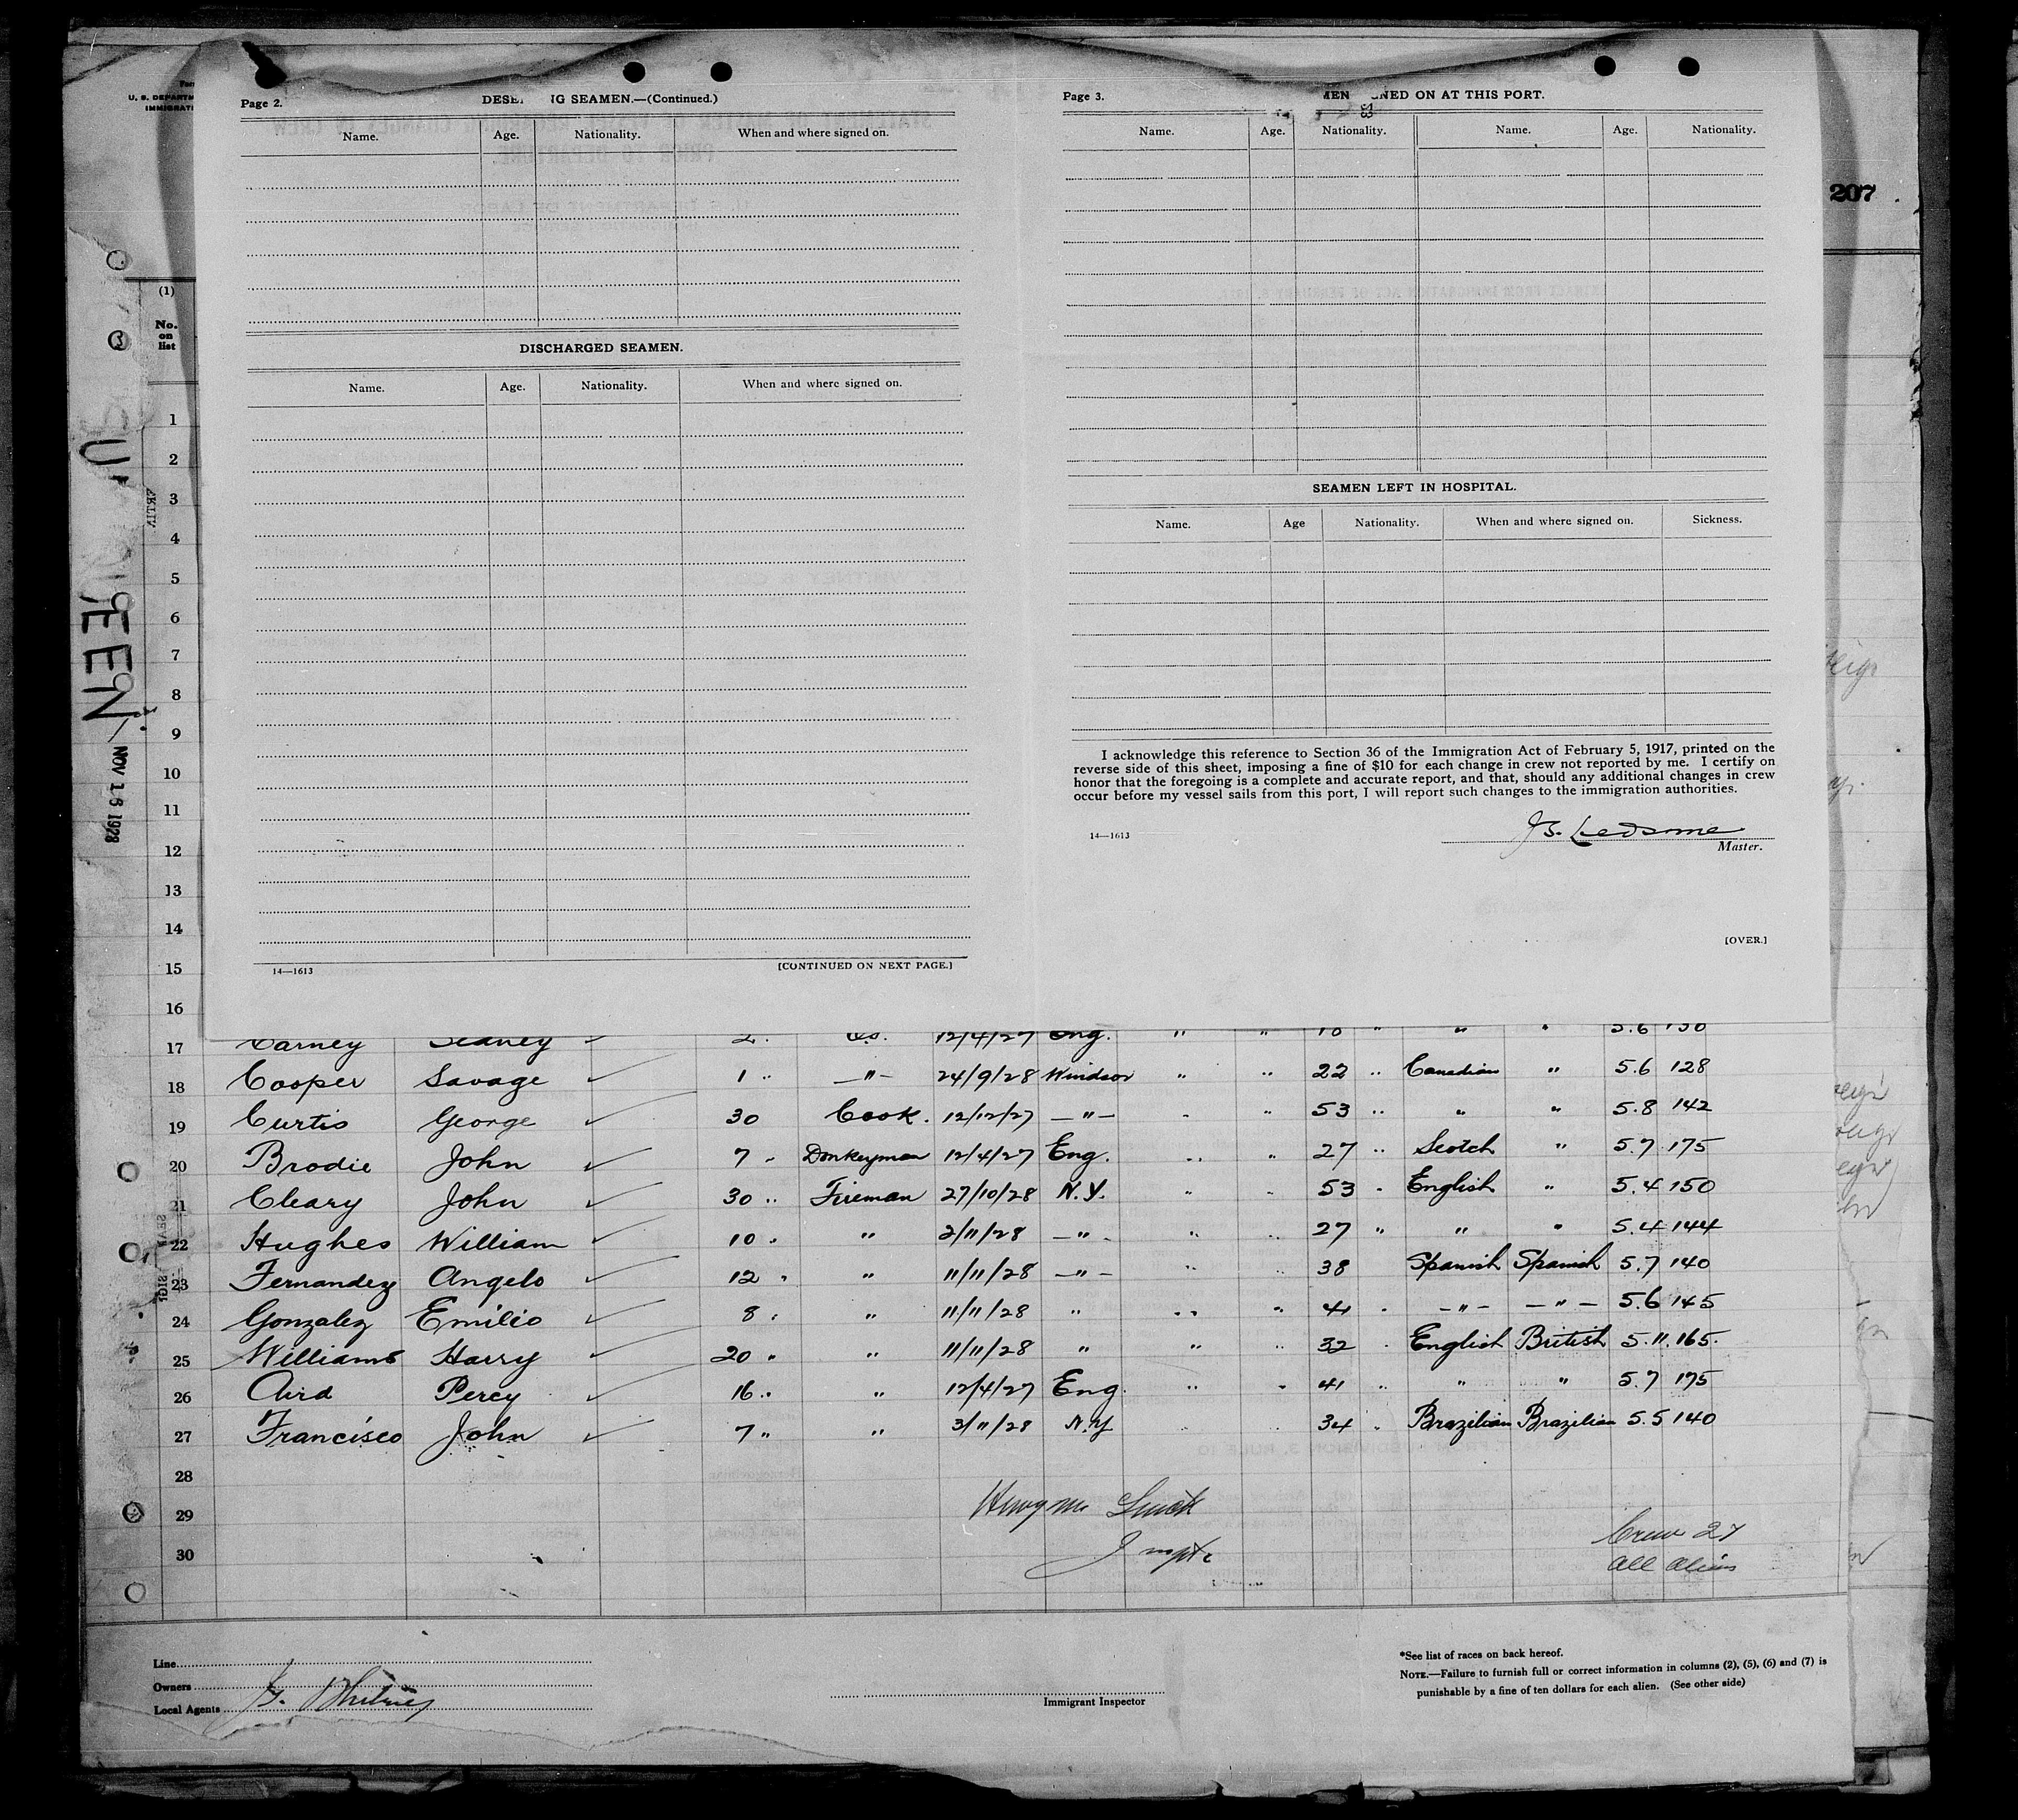 U. S. DEPARTM
IMMIGRATI
207
(1)
No.
on
list
Page 2.
DESE NG SEAMEN.—(Continued.)
Name. Age. Nationality. When and where signed on.
DISCHARGED SEAMEN.
Name. Age. Nationality. When and where signed on.
14—1613 [CONTINUED ON NEXT PAGE.]
Page 3.
MEN NED ON AT THIS PORT.
Name. Age. Nationality. Name. Age. Nationality.
SEAMEN LEFT IN HOSPITAL.
Name. Age Nationality. When and where signed on. Sickness.
I acknowledge this reference to Section 36 of the Immigration Act of February 5, 1917, printed on the
reverse side of this sheet, imposing a fine of $10 for each change in crew not reported by me. I certify on
honor that the foregoing is a complete and accurate report, and that, should any additional changes in crew
occur before my vessel sails from this port, I will report such changes to the immigration authorities.
J. Ledsome
14—1613 Master.
[OVER.]
NOV 16 1928
1
2
3
4
5
6
7
8
9
10
11
12
13
14
15
16
17 Carney Sidney 2. 12/4/27 Eng. " " 18 " " " 5.6 130
18 Cooper Savage ✓ 1 " —"— 24/9/28 Windsor " " 22 " Canadian " 5.6 128
19 Curtis George ✓ 30 Cook. 12/12/27 —"— " " 53 " " " 5.8 142
20 Brodie John ✓ 7 " Donkeyman 12/4/27 Eng. " " 27 " Scotch " 5.7 175
21 Cleary John ✓ 30 " Fireman 27/10/28 N.Y. " " 53 " English " 5.4 150
22 Hughes William ✓ 10 " " 2/11/28 —"— " " 27 " " " 5.4 144
23 Fernandez Angelo ✓ 12 " " 11/11/28 —"— " " 38 Spanish Spanish 5.7 140
24 Gonzalez Emilio ✓ 8 " " 11/11/28 " " " 41 " —"— —"— 5.6 145
25 Williams Harry ✓ 20 " " 11/11/28 " " " 32 " English British 5.11. 165.
26 Aird Percy ✓ 16 " " 12/4/27 Eng. " " 41 " " " 5.7 175
27 Francisco John ✓ 7 " " 3/11/28 N.Y " 34 " Brazilian Brazilian 5.5 140
28
29
30
Crew 27
all aliens
Line
Owners
Local Agents J. Whitney
Immigrant Inspector
*See list of races on back hereof.
NOTE.—Failure to furnish full or correct information in columns (2), (5), (6) and (7) is
punishable by a fine of ten dollars for each alien. (See other side)